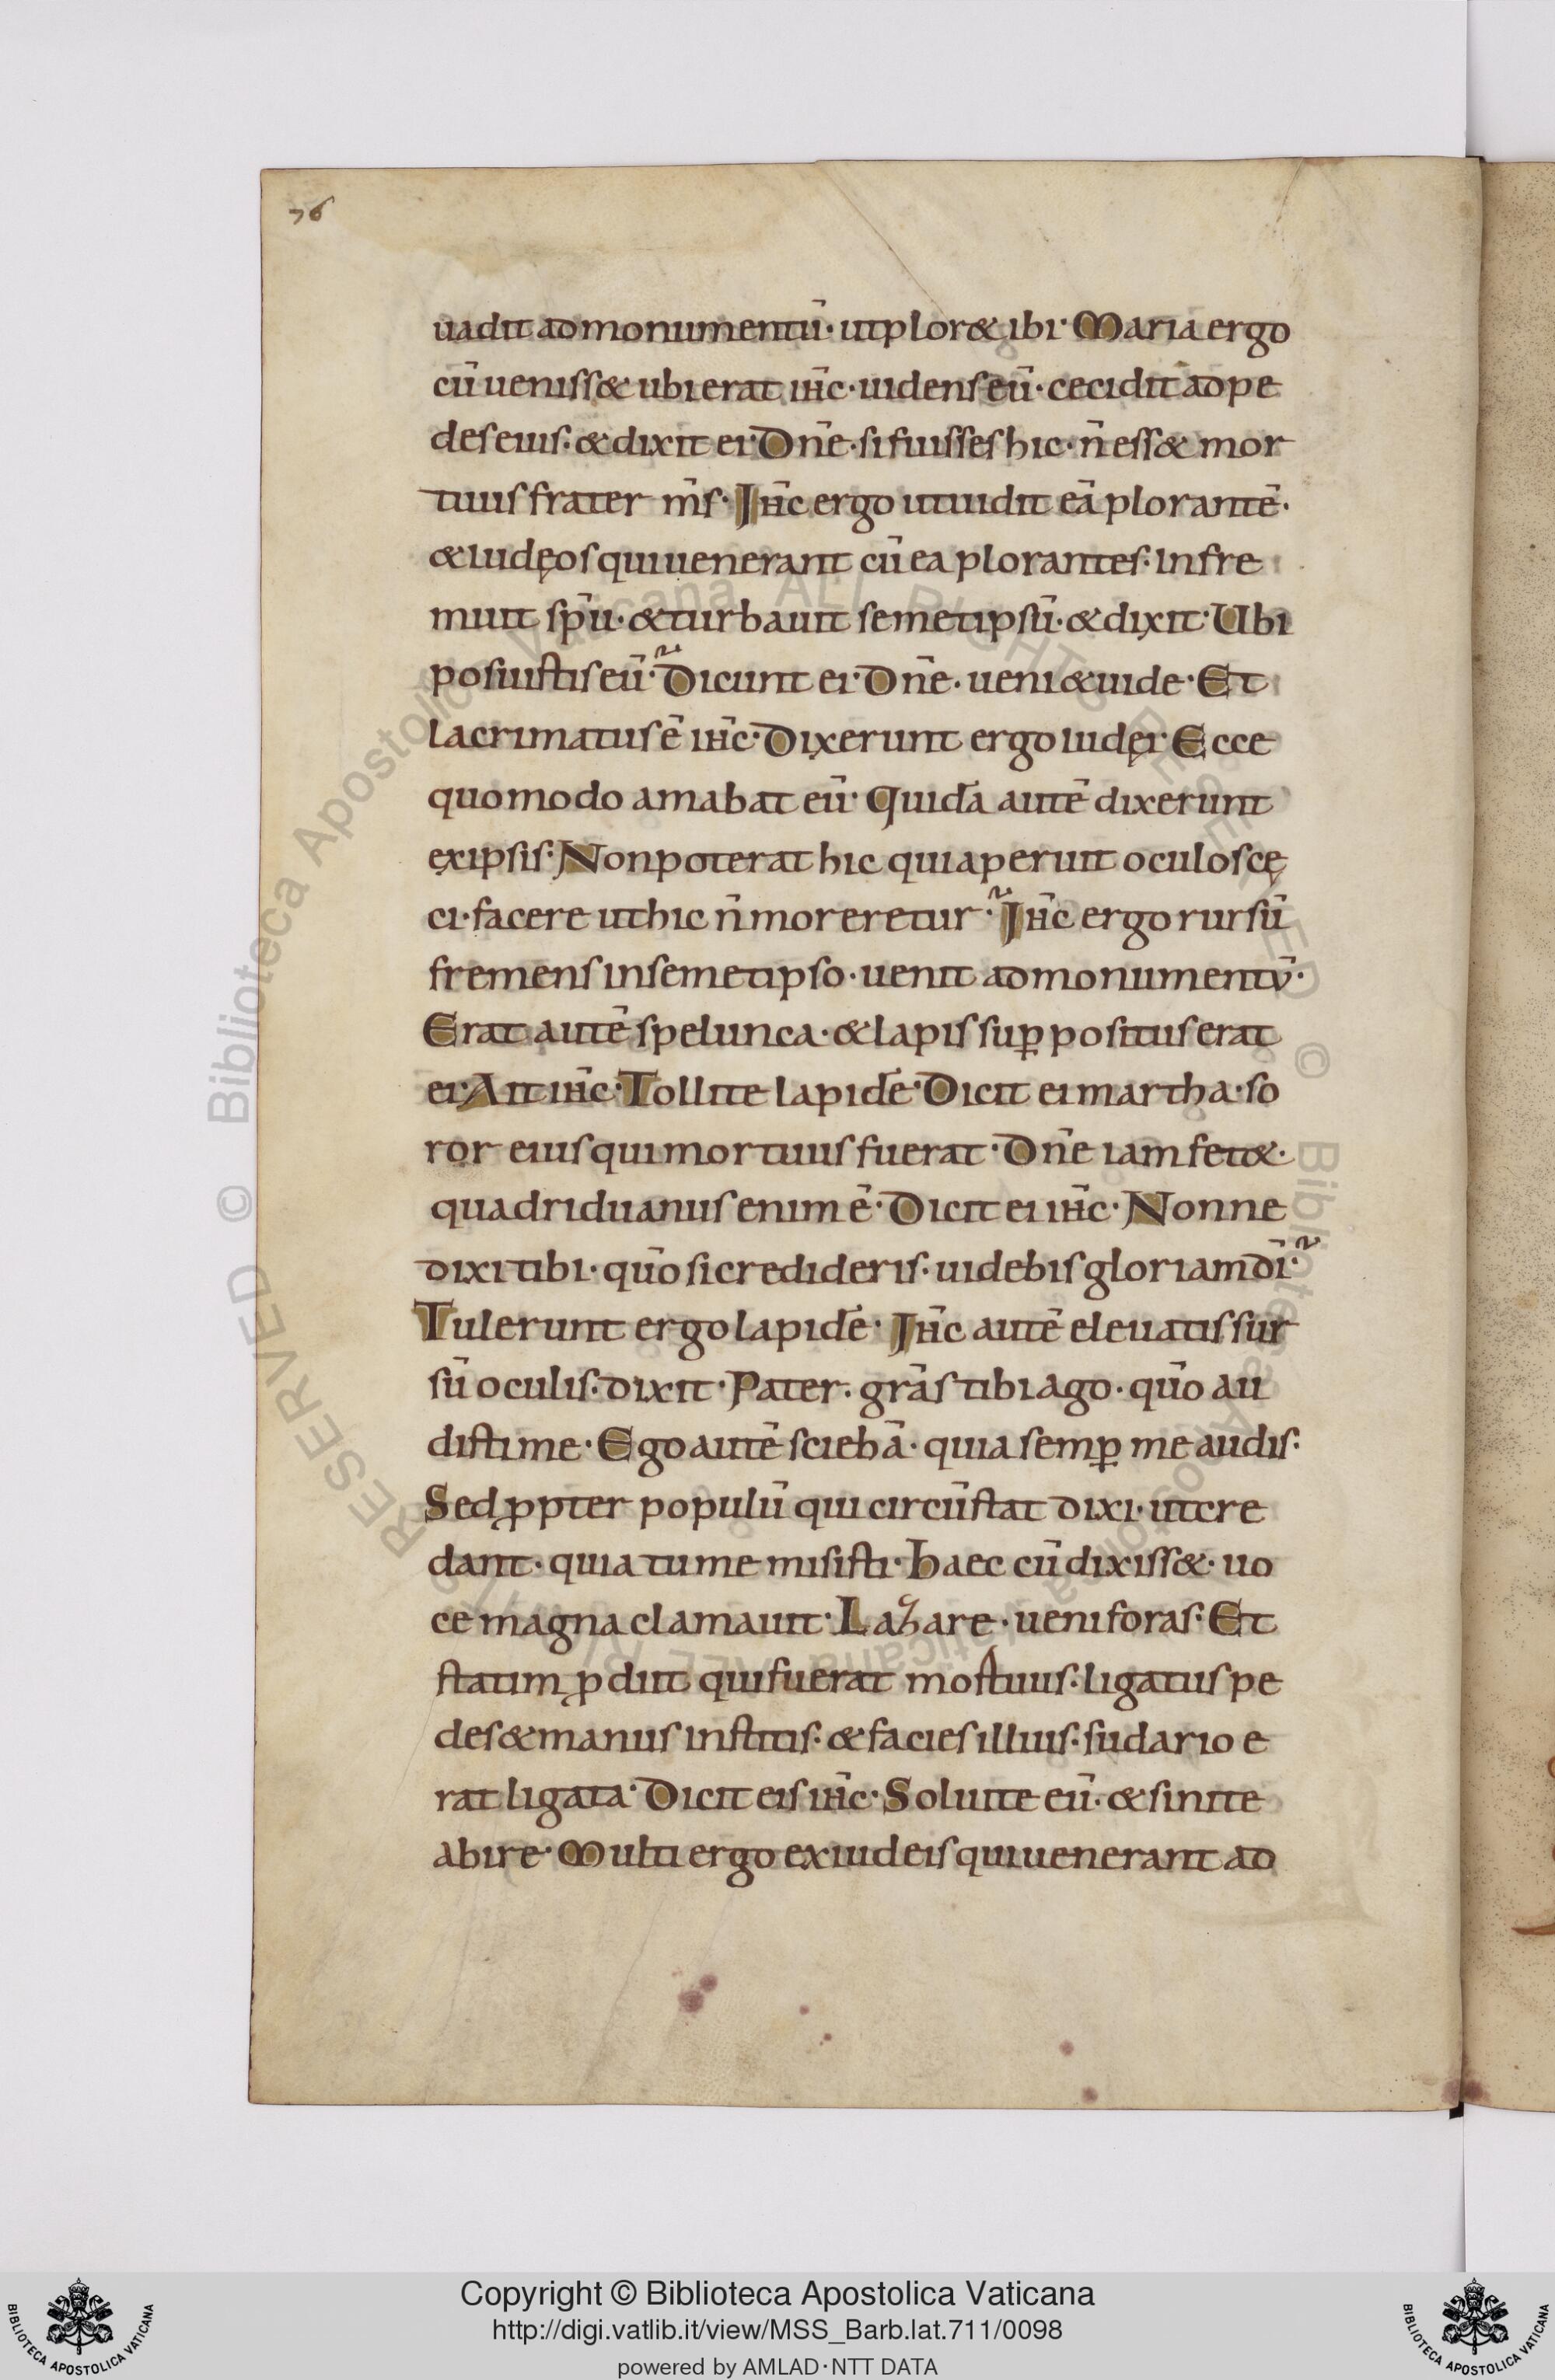 76
uadit ad monumentū· ut plor& ibi· Maria ergo
cū ueniss& ubi erat ihc̄· uidens eū· cecidit ad pe
des eius· & dixit ei· Dn̄e· si fuisses hic· n̄ ess& mor
tuus frater m̄s· Ihc̄ ergo ut uidit eā plorantē·
& iudęos qui uenerant cū ea plorantes· infre
muit sp̄u· & turbauit semetipsū· & dixit· Ubi
posuistis eū· Dicunt ei· Dn̄e· ueni & uide· Et
lacrimatus ē ihc̄· Dixerunt ergo iudęi· Ecce
quomodo amabat eū· Quidā autē dixerunt
ex ipsis· Non poterat hic qui aperuit oculos cę
ci· facere ut hic n̄ moreretur· Ihc̄ ergo rursū
fremens in semetipso· uenit ad monumentū·
Erat autē spelunca· & lapis sup̱ positus erat
ei· Ait ihc̄· Tollite lapidē· Dicit ei martha· so
ror eius qui mortuus fuerat· Dn̄e iam fet&·
quadriduanus enim ē· Dicit ei ihc̄· Nonne
dixi tibi· qūo si credideris· uidebis gloriam dī·
Tulerunt ergo lapidē· Ihc̄ autē eleuatis sur
sū oculis· dixit· Pater· grās tibi ago· qūo au
disti me· Ego autē sciebā· quia semp̱ me audis·
Sed ꝓpter populū qui circūstat dixi· ut cre
dant· quia tu me misisti· Haec cū dixiss&· uo
ce magna clamauit· Lazare· ueni foras· Et
statim ꝓdiit qui fuerat mortuus· ligatus pe
des & manus institis· & facies illius· sudario e
rat ligata· Dicit eis ihc̄· Soluite eū· & sinite
abire· Multi ergo ex iudeis qui uenerant ad
© Biblioteca Apostolica Vaticana ALL RIGHTS RESERVED © Biblioteca Apostolica Vaticana ALL RIGHTS RESERVED
Copyright © Biblioteca Apostolica Vaticana
http://digi.vatlib.it/view/MSS_Barb.lat.711/0098
powered by AMLAD·NTT DATA
BIBLIOTECA APOSTOLICA VATICANA
BIBLIOTECA APOSTOLICA VATICANA